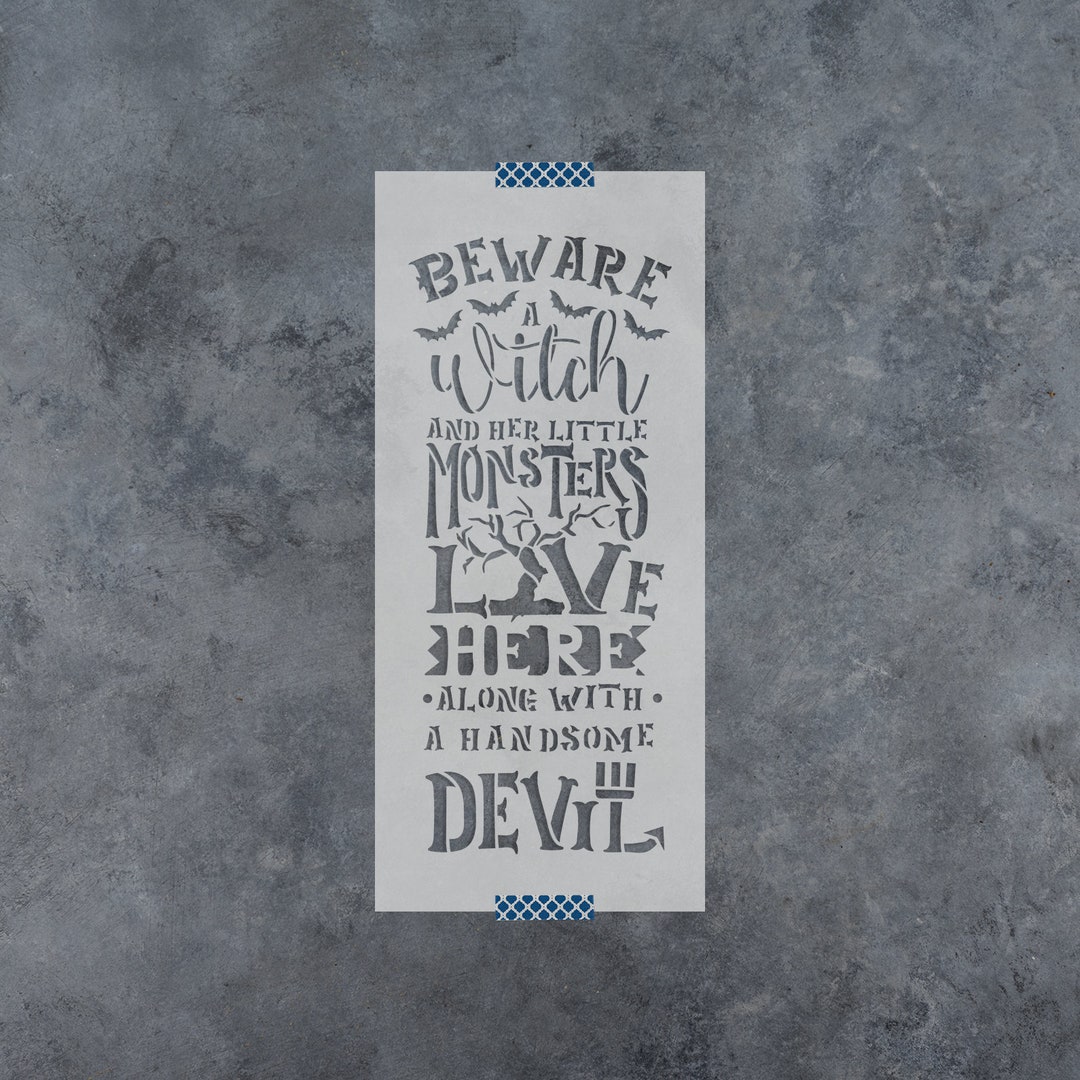 BEWARE
A
Witch
AND HER LITTLE
MONSTERS
LIVE
HERE
•ALONG WITH•
A HANDSOME
DEViL